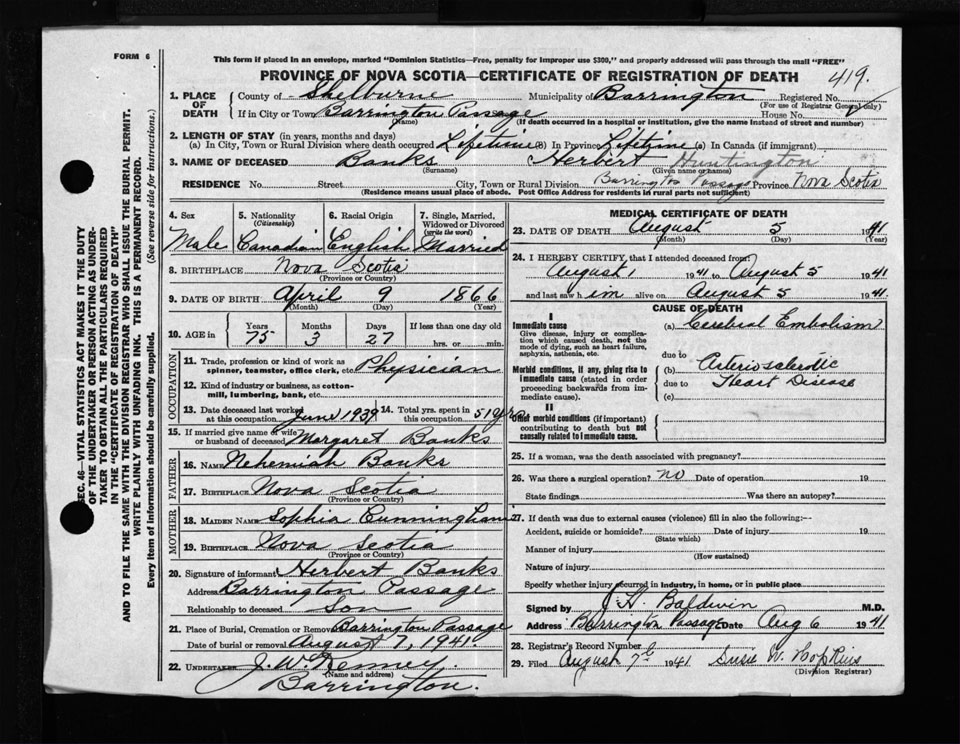 FORM 6
This form if placed in an envelope, marked "Dominion Statistics—Free, penalty for improper use $300," and properly addressed will pass through the mail "FREE"
PROVINCE OF NOVA SCOTIA—CERTIFICATE OF REGISTRATION OF DEATH
419.
1. PLACE OF DEATH
County of Shelburne Municipality of Barrington Registered No.
(For use of Registrar General only)
If in City or Town Barrington Passage House No.
(Name) (If death occurred in a hospital or institution, give the name instead of street and number)
2. LENGTH OF STAY (in years, months and days)
(a) In City, Town or Rural Division where death occurred Lifetime (b) In Province Lifetime (c) In Canada (if immigrant)
3. NAME OF DECEASED Banks Herbert Huntington
(Surname) (Given name or names)
RESIDENCE No. Street City, Town or Rural Division Barrington Passage Province Nova Scotia
(Residence means usual place of abode. Post Office Address for residents in rural parts not sufficient)
SEC. 46—VITAL STATISTICS ACT MAKES IT THE DUTY
OF THE UNDERTAKER OR PERSON ACTING AS UNDER-
TAKER TO OBTAIN ALL THE PARTICULARS REQUIRED
IN THE "CERTIFICATE OF REGISTRATION OF DEATH"
AND TO FILE THE SAME WITH THE DIVISION REGISTRAR WHO SHALL ISSUE THE BURIAL PERMIT.
WRITE PLAINLY WITH UNFADING INK. THIS IS A PERMANENT RECORD.
Every item of information should be carefully supplied. (See reverse side for instructions.)
4. Sex
Male
5. Nationality
(Citizenship)
Canadian
6. Racial Origin
English
7. Single, Married,
Widowed or Divorced
(write the word)
Married
8. BIRTHPLACE Nova Scotia
(Province or Country)
9. DATE OF BIRTH April 9 1866
(Month) (Day) (Year)
10. AGE in
Years Months Days If less than one day old
75 3 27 hrs. or min.
OCCUPATION
11. Trade, profession or kind of work as
spinner, teamster, office clerk, etc. Physician
12. Kind of industry or business, as cotton-
mill, lumbering, bank, etc.
13. Date deceased last worked
at this occupation June 1939
14. Total yrs. spent in
this occupation 51 yrs
15. If married give name of wife
or husband of deceased Margaret Banks
FATHER
16. NAME Nehemiah Banks
17. BIRTHPLACE Nova Scotia
(Province or Country)
MOTHER
18. MAIDEN NAME Sophia Cunningham
19. BIRTHPLACE Nova Scotia
(Province or Country)
20. Signature of informant Herbert Banks
Address Barrington Passage
Relationship to deceased Son
21. Place of Burial, Cremation or Removal Barrington Passage
Date of burial or removal August 7, 1941.
22. UNDERTAKER J. W. Kenney.
(Name and address)
Barrington.
MEDICAL CERTIFICATE OF DEATH
23. DATE OF DEATH August 5 1941
(Month) (Day) (Year)
24. I HEREBY CERTIFY, that I attended deceased from:
August 1 1941 to August 5 1941
and last saw h im alive on August 5 1941.
CAUSE OF DEATH
I
Immediate cause
Give disease, injury or complica-
tion which caused death, not the
mode of dying, such as heart failure,
asphyxia, asthenia, etc.
(a) Cerebral Embolism
due to
Morbid conditions, if any, giving rise to
immediate cause (stated in order
proceeding backwards from im-
mediate cause).
(b) Arteriosclerotic
due to Heart Disease
(c)
II
Other morbid conditions (if important)
contributing to death but not
causally related to immediate cause.
25. If a woman, was the death associated with pregnancy?
26. Was there a surgical operation? no Date of operation 19
State findings Was there an autopsy?
27. If death was due to external causes (violence) fill in also the following:—
Accident, suicide or homicide? Date of injury 19
(State which)
Manner of injury
(How sustained)
Nature of injury
Specify whether injury occurred in industry, in home, or in public place
Signed by J. H. Baldwin M.D.
Address Barrington Passage Date Aug 6 1941
28. Registrar's Record Number
29. Filed August 7th 1941 Susie W. Hopkins
(Division Registrar)